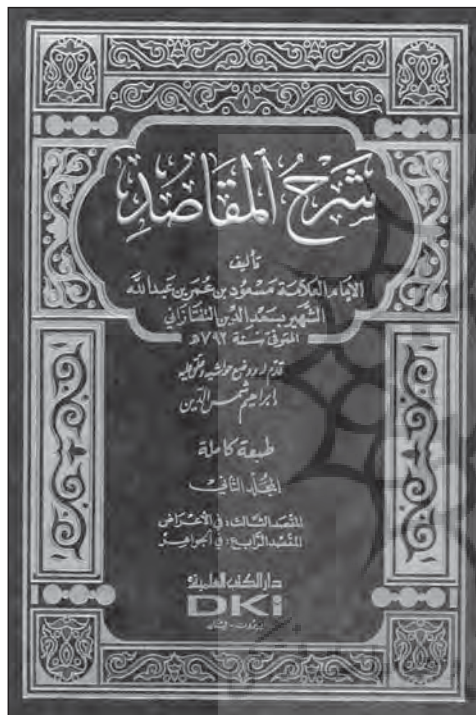 شرح المقاصد
تأليف
الإمام العلامة مسعود بن عمر بن عبد الله
الشهير بسعد الدين التفتازاني
المتوفى سنة ٧٩٣هـ
قدم له ووضع حواشيه وعلق عليه
إبراهيم شمس الدين
طبعة كاملة
المجلد الثاني
المقصد الثالث: في الأعراض
المقصد الرابع: في الجواهر
دار الكتب العلمية
DKi
بيروت - لبنان